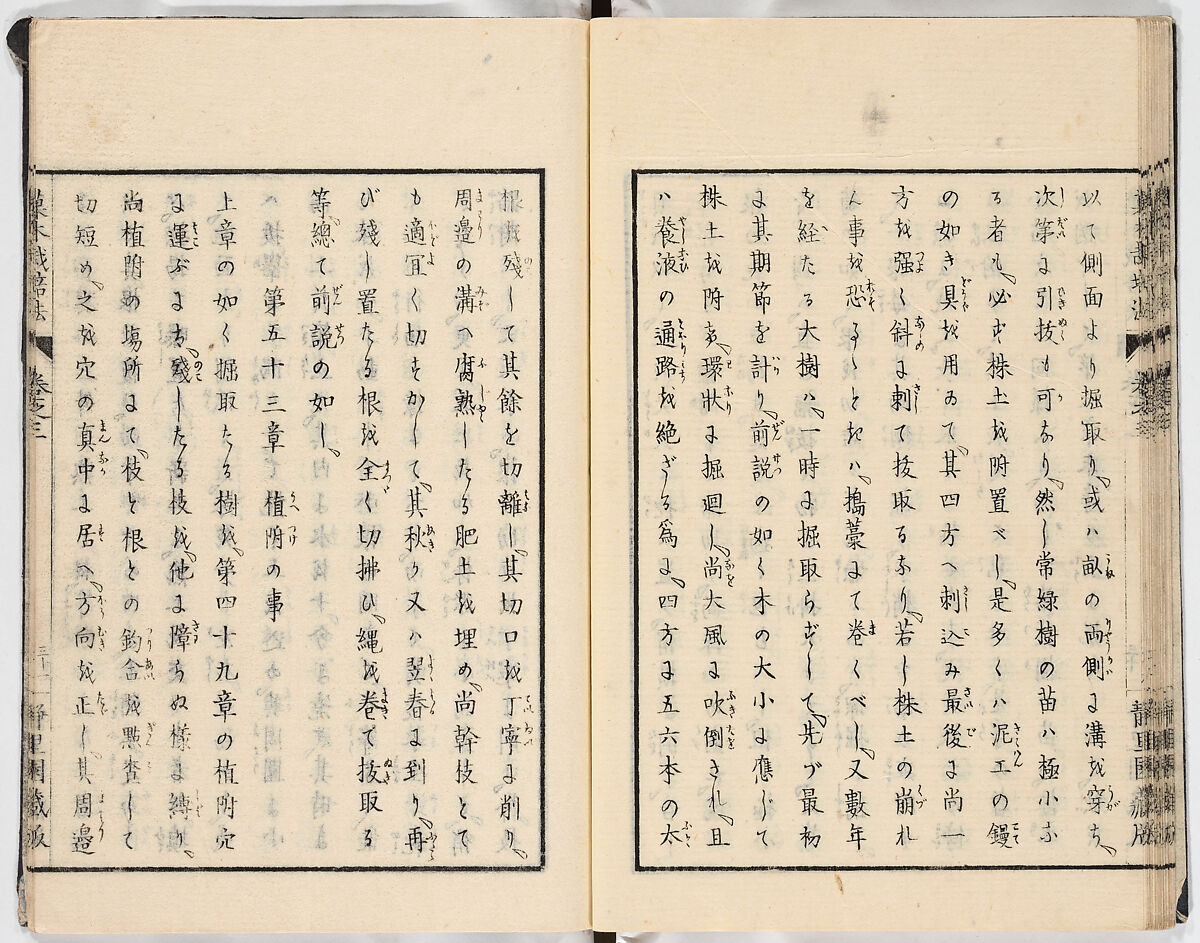 以て側面より掘取り、或ハ畝の両側に溝を穿ち、
次第に引抜も可なり、然し常緑樹の苗ハ極小な
る者も、必ず株土を附置べし、是多くハ泥工の鏝
の如き具を用ゐて、其四方へ刺込み最後に尚一
方を强く斜に刺て抜取るなり、若し株土の崩れ
ん事を恐るゝときハ、搗藁にて巻くべし、又數年
を経たる大樹ハ、一時に掘取らずして、先づ最初
に其期節を計り、前説の如く木の大小に應じて
株土を附ま、環狀に掘廻し、尚大風に吹倒され、且
ハ養液の通路を絶ざる爲に、四方に五六本の太
根を殘して其餘を切離し、其切口を丁寧に削り、
周邉の溝へ腐熟したる肥土を埋め、尚幹枝とて
も適冝く切すかして、其秋か又ハ翌春に到り、再
び殘し置たる根を全く切拂ひ、縄を巻て抜取る
等、總て前説の如し、
第五十三章 植附の事
上章の如く掘取たる樹を、第四十九章の植附穴
に運ぶにハ、殘したる枝を、他に障らぬ樣に縛り、
尚植附の塲所にて、枝と根との釣合を㸃査して
切短め、之を穴の真中に居へ、方向を正し、其周邉
菓木栽培法 巻之三 三十一 靜里園藏版